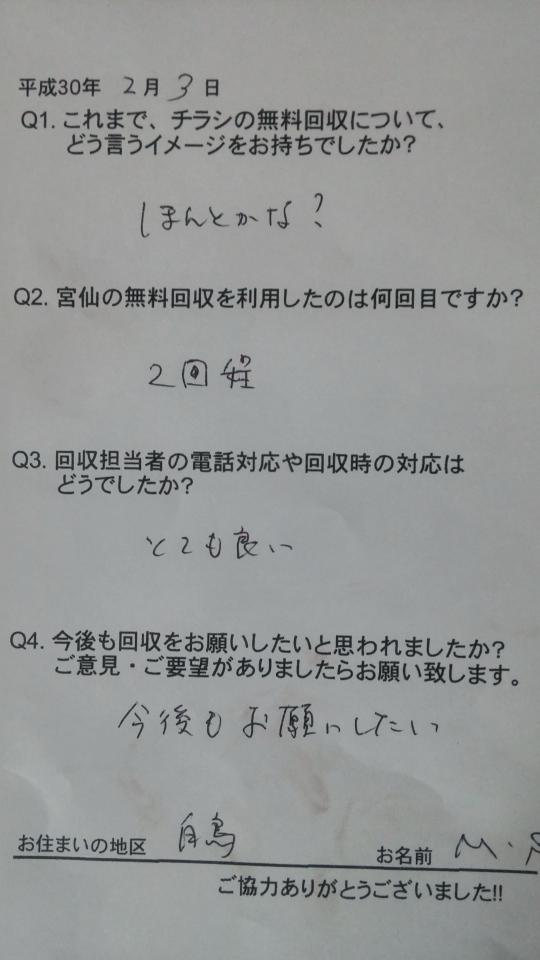 平成30年 2月 3日
Q1. これまで、チラシの無料回収について、
どう言うイメージをお持ちでしたか?
ほんとかな?
Q2. 宮仙の無料回収を利用したのは何回目ですか?
2回程
Q3. 回収担当者の電話対応や回収時の対応は
どうでしたか?
とても良い
Q4. 今後も回収をお願いしたいと思われましたか?
ご意見・ご要望がありましたらお願い致します。
今後もお願いしたい
お住まいの地区 白鳥 お名前 M.
ご協力ありがとうございました!!